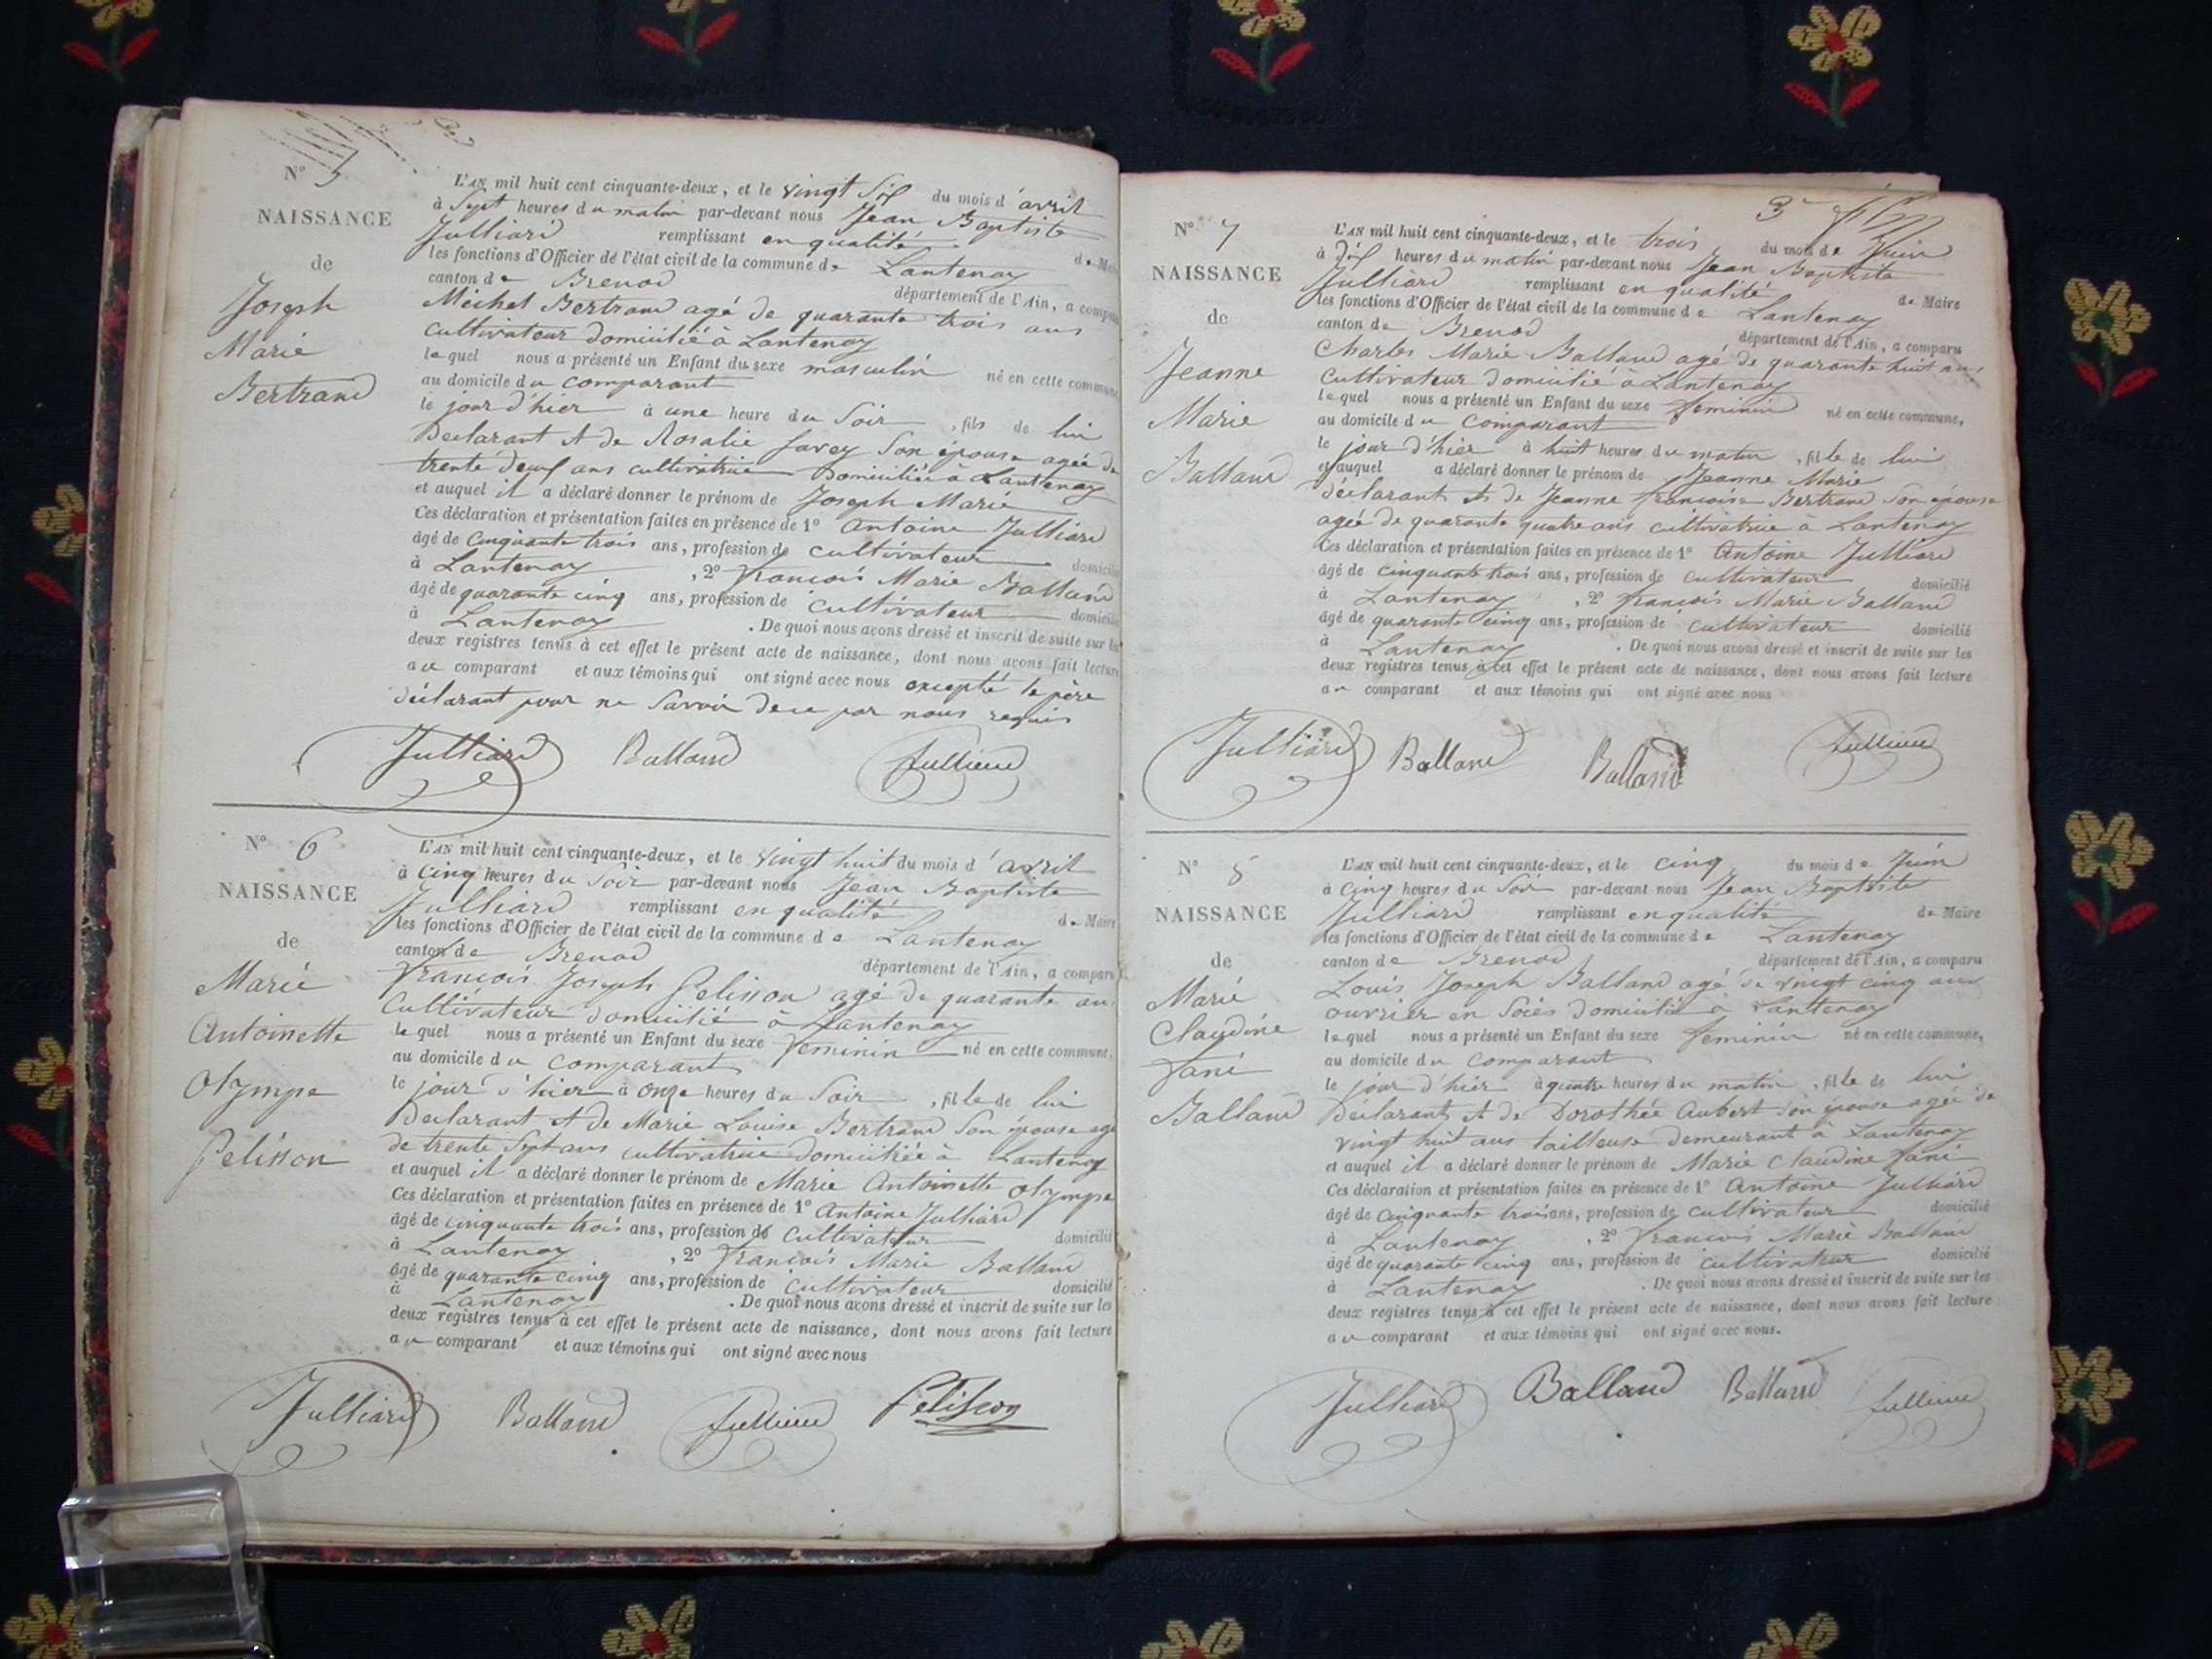 N° 5
NAISSANCE
de
Joseph
Marie
Bertrand
L'AN mil huit cent cinquante-deux, et le vingt six du mois d'avril
à Sept heures du matin par-devant nous Jean Baptiste
Julliard remplissant en qualité de Maire
les fonctions d'Officier de l'état civil de la commune de Lantenay
canton de Brenod département de l'Ain, a comparu
Michel Bertrand agé de quarante trois ans
Cultivateur domicilié à Lantenay
lequel nous a présenté un Enfant du sexe masculin né en cette commune
au domicile du comparant
le jour d'hier à une heure du Soir, fils de lui
Declarant et de Rosalie Savey Son épouse agée de
trente deux ans cultivatrice Domiciliée à Lantenay
et auquel il a déclaré donner le prénom de Joseph Marie
Ces déclaration et présentation faites en présence de 1° Antoine Julliard
âgé de Cinquante trois ans, profession de cultivateur domicilié
à Lantenay, 2° françois Marie Balland
âgé de quarante cinq ans, profession de cultivateur domicilié
à Lantenay. De quoi nous avons dressé et inscrit de suite sur les
deux registres tenus à cet effet le présent acte de naissance, dont nous avons fait lecture
au comparant et aux témoins qui ont signé avec nous excepté le père
déclarant pour ne Savoir de ce par nous requis
Julliard Balland Jullierd
N° 6
NAISSANCE
de
Marie
Antoinette
Olympe
Pelisson
L'AN mil huit cent cinquante-deux, et le vingt huit du mois d'avril
à Cinq heures du Soir par-devant nous Jean Baptiste
Julliard remplissant en qualité de Maire
les fonctions d'Officier de l'état civil de la commune de Lantenay
canton de Brenod département de l'Ain, a comparu
françois Joseph Pelisson agé de quarante ans
Cultivateur domicilié à Lantenay
lequel nous a présenté un Enfant du sexe feminin né en cette commune,
au domicile du comparant
le jour d'hier à onze heures du Soir, fille de lui
Declarant et de Marie Louise Bertrand Son épouse agé
de trente Sept ans cultivatrice domiciliée à Lantenay
et auquel il a déclaré donner le prénom de Marie Antoinette Olympe
Ces déclaration et présentation faites en présence de 1° Antoine Julliard
âgé de cinquante trois ans, profession de Cultivateur domicilié
à Lantenay, 2° françois Marie Balland
âgé de quarante cinq ans, profession de Cultivateur domicilié
à Lantenay. De quoi nous avons dressé et inscrit de suite sur les
deux registres tenus à cet effet le présent acte de naissance, dont nous avons fait lecture
au comparant et aux témoins qui ont signé avec nous
Julliard Balland Jullierd Pelisson
3
N° 7
NAISSANCE
de
Jeanne
Marie
Balland
L'AN mil huit cent cinquante-deux, et le trois du mois de Juin
à dix heures du matin par-devant nous Jean Baptiste
Julliard remplissant en qualité de Maire
les fonctions d'Officier de l'état civil de la commune de Lantenay
canton de Brenod département de l'Ain, a comparu
Charles Marie Balland agé de quarante huit ans
Cultivateur domicilié à Lantenay
lequel nous a présenté un Enfant du sexe feminin né en cette commune,
au domicile du Comparant
le jour d'hier à huit heures du matin, fille de lui
et auquel a déclaré donner le prénom de Jeanne Marie
déclarant et de Jeanne françoise Bertrand Son épouse
agée de quarante quatre ans cultivatrice à Lantenay
Ces déclaration et présentation faites en présence de 1° Antoine Julliard
âgé de cinquante trois ans, profession de cultivateur domicilié
à Lantenay, 2° françois Marie Balland
âgé de quarante cinq ans, profession de cultivateur domicilié
à Lantenay. De quoi nous avons dressé et inscrit de suite sur les
deux registres tenus à cet effet le présent acte de naissance, dont nous avons fait lecture
au comparant et aux témoins qui ont signé avec nous
Julliard Balland Balland Jullierd
N° 8
NAISSANCE
de
Marie
Claudine
fani
Balland
L'AN mil huit cent cinquante-deux, et le cinq du mois de Juin
à Cinq heures du Soir par-devant nous Jean Baptiste
Julliard remplissant en qualité de Maire
les fonctions d'Officier de l'état civil de la commune de Lantenay
canton de Brenod département de l'Ain, a comparu
Louis Joseph Balland agé de vingt cinq ans
ouvrier en Soies domicilié à Lantenay
lequel nous a présenté un Enfant du sexe feminin né en cette commune,
au domicile du Comparant
le jour d'hier à quatre heures du matin, fille de lui
Declarant et de Dorothée Aubert Son épouse agée de
vingt huit ans tailleuse demeurant à Lantenay
et auquel il a déclaré donner le prénom de Marie Claudine fani
Ces déclaration et présentation faites en présence de 1° Antoine Julliard
âgé de cinquante trois ans, profession de cultivateur domicilié
à Lantenay, 2° françois Marie Balland
âgé de quarante cinq ans, profession de cultivateur domicilié
à Lantenay. De quoi nous avons dressé et inscrit de suite sur les
deux registres tenus à cet effet le présent acte de naissance, dont nous avons fait lecture
au comparant et aux témoins qui ont signé avec nous.
Julliard Balland Balland Jullierd